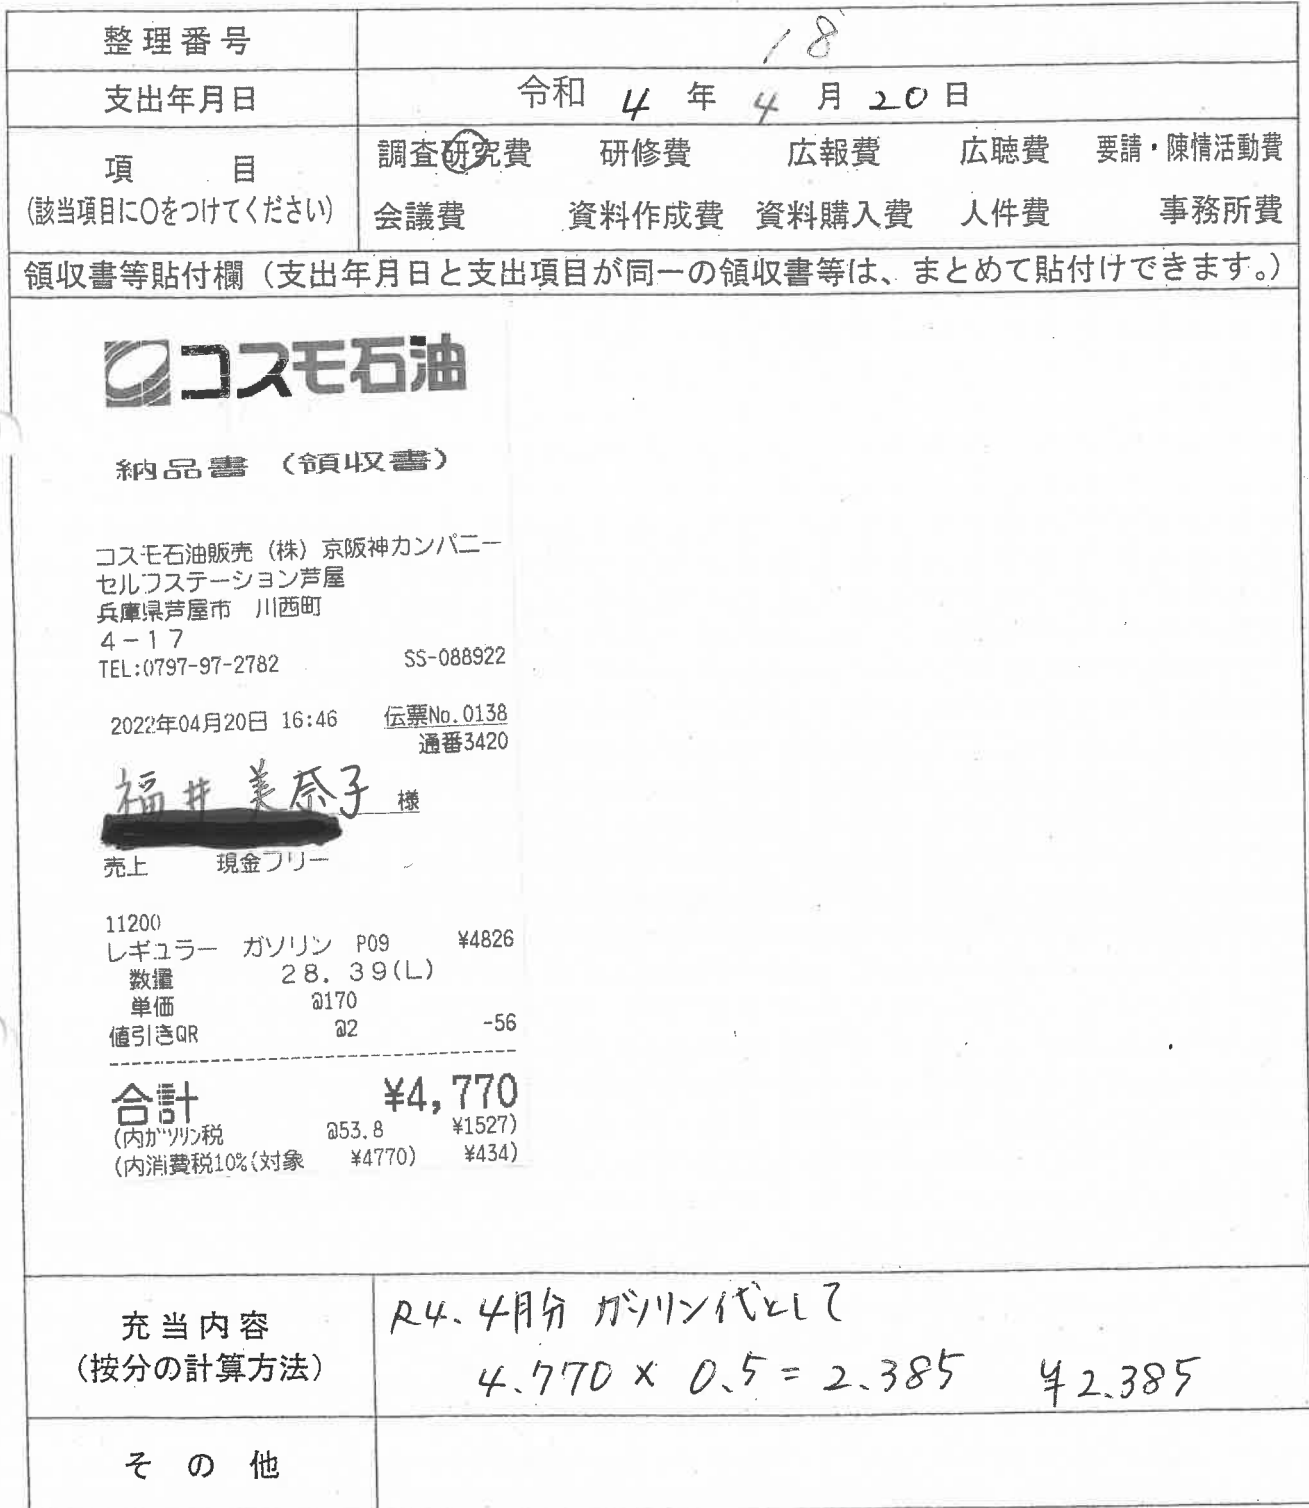 整理番号 18
支出年月日 令和 4 年 4 月 20 日
項目 調査研究費 研修費 広報費 広聴費 要請・陳情活動費
(該当項目に〇をつけてください) 会議費 資料作成費 資料購入費 人件費 事務所費
領収書等貼付欄（支出年月日と支出項目が同一の領収書等は、まとめて貼付けできます。）
コスモ石油
納品書（領収書）
コスモ石油販売（株）京阪神カンパニー
セルフステーション芦屋
兵庫県芦屋市 川西町
４－１７
TEL:0797-97-2782 SS-088922
2022年04月20日 16:46 伝票No.0138
通番3420
福井 美奈子 様
売上 現金フリー
11200
レギュラー ガソリン P09 ¥4826
数量 ２８．３９(L)
単価 @170
値引きQR @2 -56
合計 ¥4,770
(内ガソリン税 @53.8 ¥1527)
(内消費税10%(対象 ¥4770) ¥434)
充当内容 R4.4月分 ガソリン代として
(按分の計算方法) 4.770 × 0.5 = 2.385 ¥2.385
その他